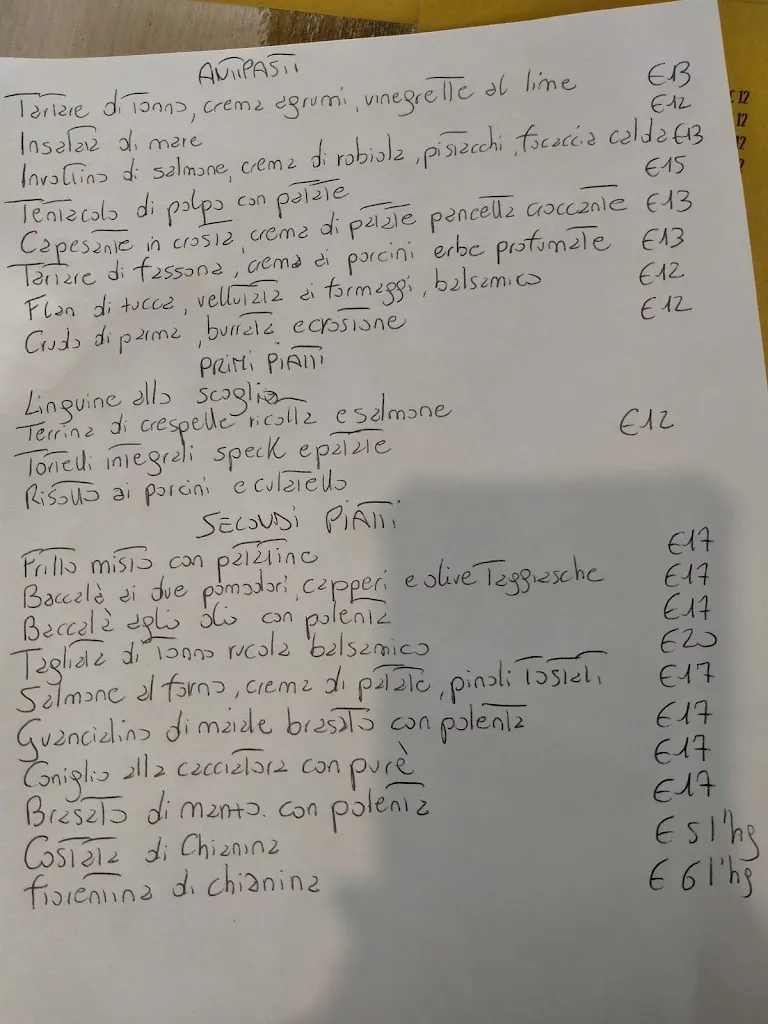 ANTIPASTI
Tartare di Tonno, crema agrumi, vinegrette al lime €13
Insalata di mare €12
Involtino di salmone, crema di robiola, pistacchi, focaccia calda €13
Tentacolo di polpo con patate €15
Capesante in crosta, crema di patate pancetta croccante €13
Tartare di fassona, crema ai porcini erbe profumate €13
Flan di zucca, vellutata ai formaggi, balsamico €12
Crudo di parma, burrata e crostone €12
PRIMI PIATTI
Linguine allo scoglio
Terrina di crespelle ricotta e salmone €12
Tortelli integrali speck e patate
Risotto ai porcini e culatello
SECONDI PIATTI
Fritto misto con patatine €17
Baccalà ai due pomodori, capperi e olive Taggiasche €17
Baccalà aglio olio con polenta €17
Tagliata di Tonno rucola balsamico €20
Salmone al forno, crema di patate, pinoli Tostati €17
Guancialino di maiale brasato con polenta €17
Coniglio alla cacciatora con purè €17
Brasato di manzo. con polenta €17
Costata di Chianina € 5 l'hg
fiorentina di chianina € 6 l'hg
€ 12
12
12